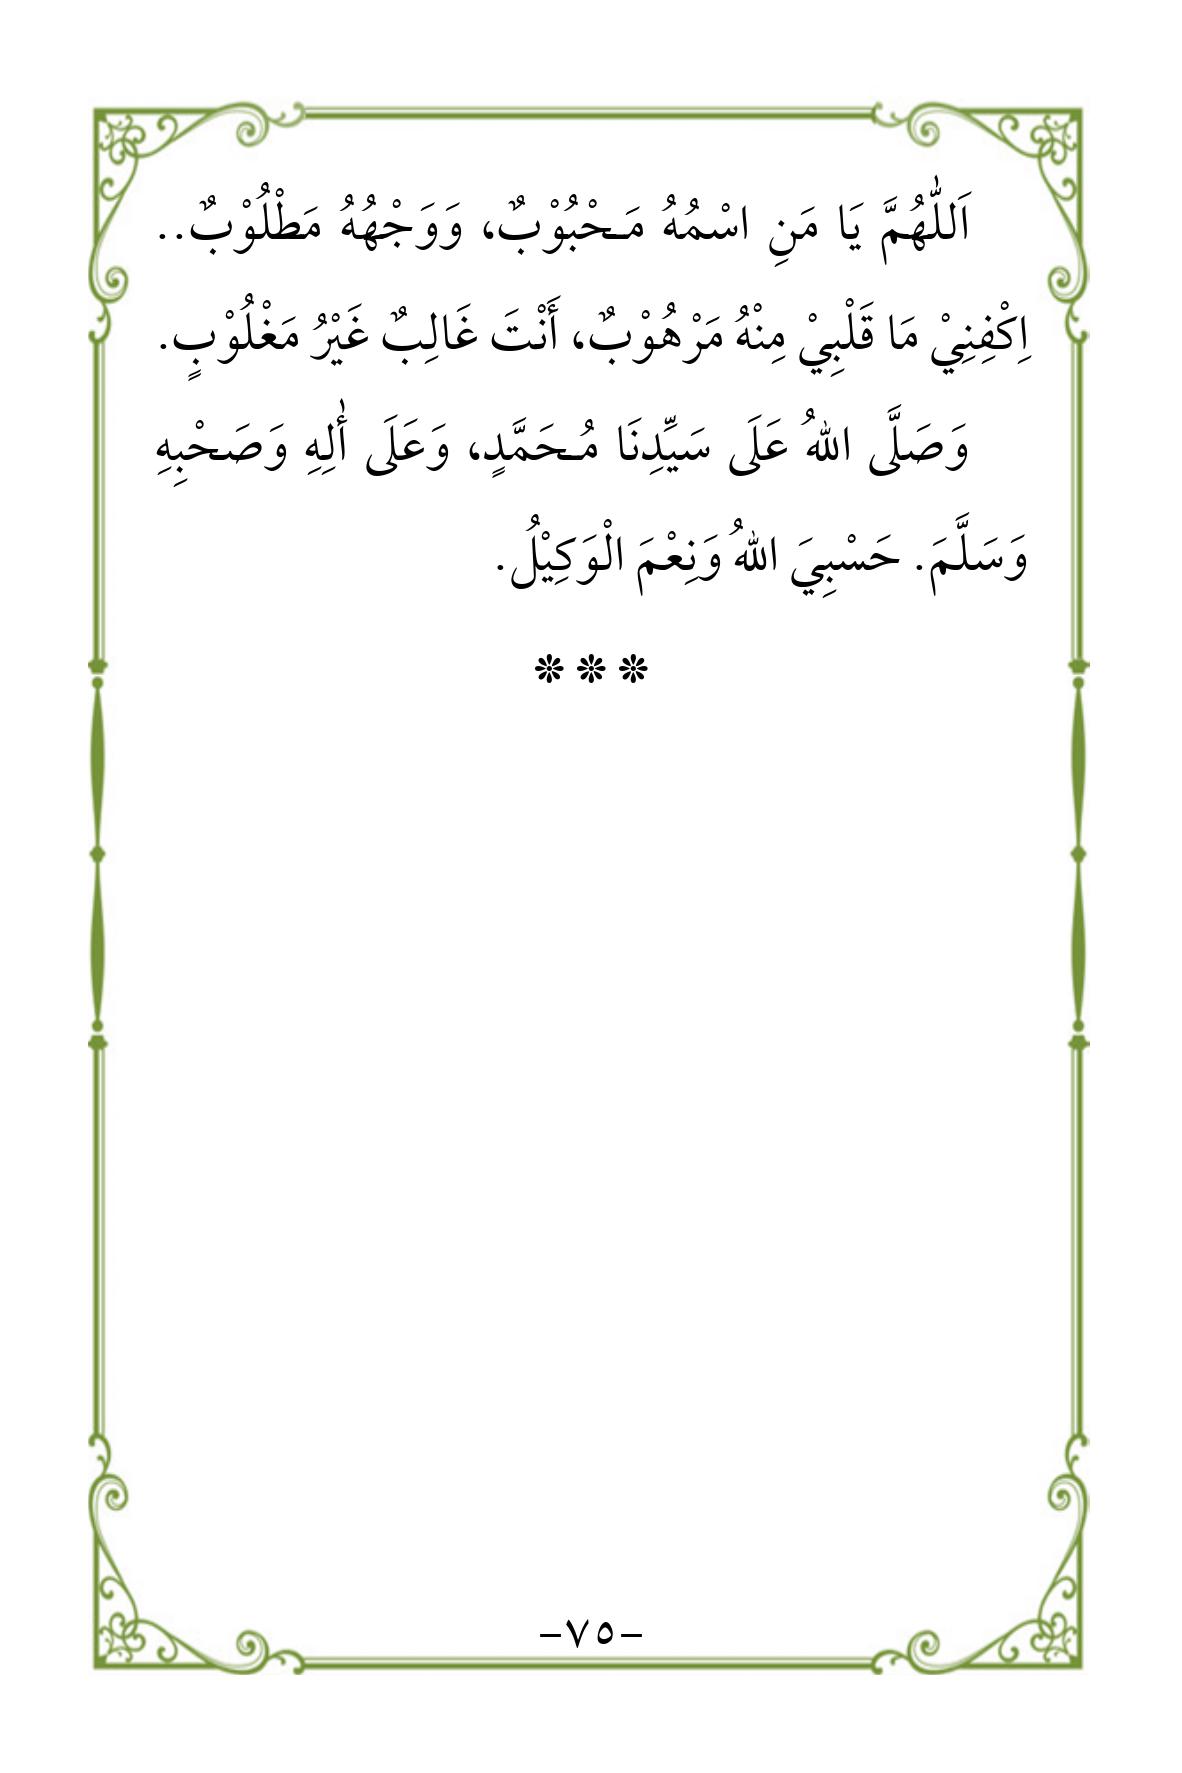 اَللّٰهُمَّ يَا مَنِ اسْمُهُ مَـحْبُوْبٌ، وَوَجْهُهُ مَطْلُوْبٌ..
اِكْفِنِيْ مَا قَلْبِيْ مِنْهُ مَرْهُوْبٌ، أَنْتَ غَالِبٌ غَيْرُ مَغْلُوْبٍ.
وَصَلَّى اللهُ عَلَى سَيِّدِنَا مُـحَمَّدٍ، وَعَلَى أٰلِهِ وَصَحْبِهِ
وَسَلَّمَ. حَسْبِيَ اللهُ وَنِعْمَ الْوَكِيْلُ.
❊ ❊ ❊
–٧٥–